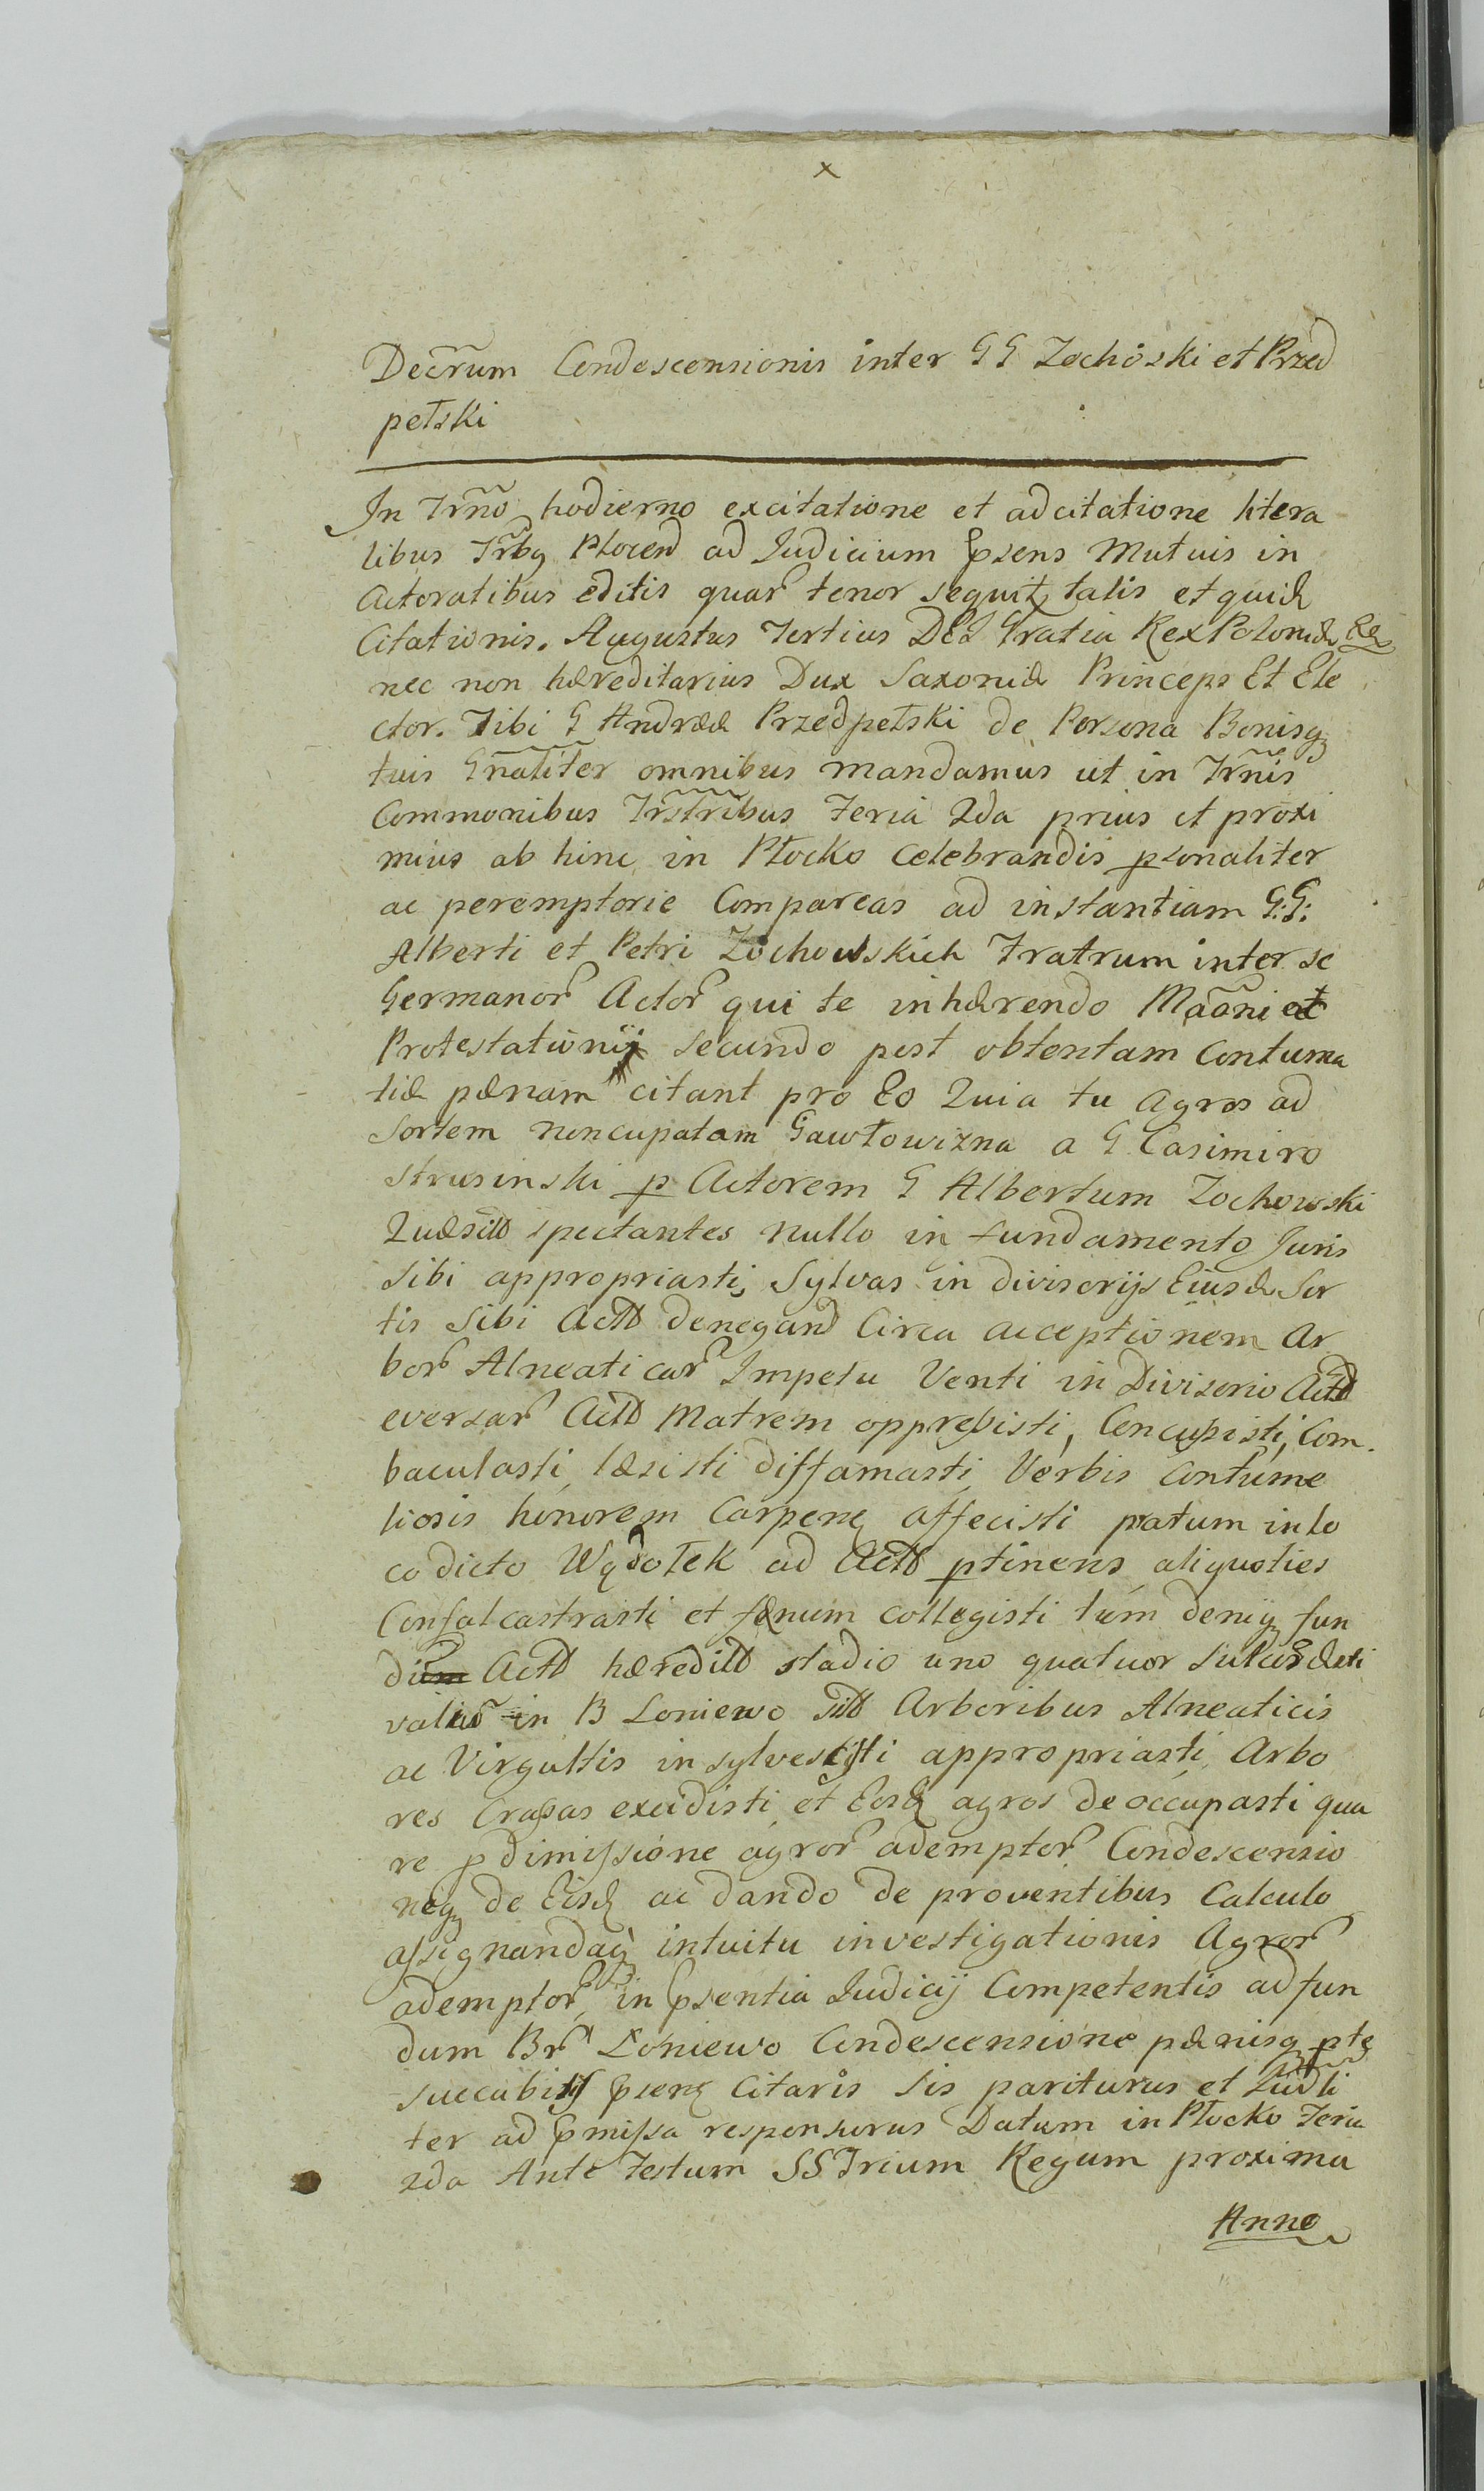 x
Decrum Condescensionis inter GG Zochoski et Przed
pełski
In Trno hodierno excitatione et adcitatione litera
libus Trbq Plocen ad Judicium psens Mutuis in
Actoratibus editis quar tenor sequit talis et quid
Citationis. Augustus Tertius DEI Gratia Rex Poloniæ
nec non hæreditarius Dux Saxoniæ Princeps Et Ele
ctor. Tibi G Andreæ Przedpełski de Persona Bonisq
tuis Gnaliter omnibus mandamus ut in Trnis
Commonibus Trstribus Feria 2da prius et proxi
mius ab hinc in Płocko Celebrandis psonaliter
ac peremptorie Compareas ad instantiam G:G:
Alberti et Petri Zochowskich Fratrum inter se
Germanor Actor qui te inhærendo Maoni et
Protestationij secundo post obtentam Contuma
tiæ pænam citant pro Eo Quia tu Agros ad
Sortem noncupatam Gawłowizna a G Casimiro
Strusinski p Actorem G Albertum Zochowski
Quæsit spectantes nullo in fundamento Juris
Sibi appropriasti, Sylvas in divisorijs Eiusd Sor
tis Sibi Actt denegand Circa acceptionem Ar
bor Alneaticar Impetu Venti in Divisorio Actt
eversar Actt Matrem oppressisti, Concussisti, Com
baculasti, læsisti diffamasti, Verbis Contume
liosis honorem Carpen affecisti pratum in lo
co dicto Wądołek ad Actt ptinens aliquoties
Confalcastrasti et fænum collegisti tum deniq fun
dum Actt hæredit stadio uno quatuor Sulcis
in B Loniewo sitt Arboribus Alneaticis
ac Virgultis insylvescisti appropriasti, Arbo
res Crassas excidisti, et Eosd agros deoccupasti qua
re p dimissione agror ademptor Condescensio
neq de Eisd ac dando de proventibus Calculo
assignandaq intuitu investigationis Agror
ademptor in psentia Judicij Competentis ad fun
dum Br Loniewo Condescensione pænisq
succubitis psens Citaris sis pariturus et Judli
ter ad pmissa responsurus Datum in Płocko Feria
2da Ante Festum SS Trium Regum proxima
Anno